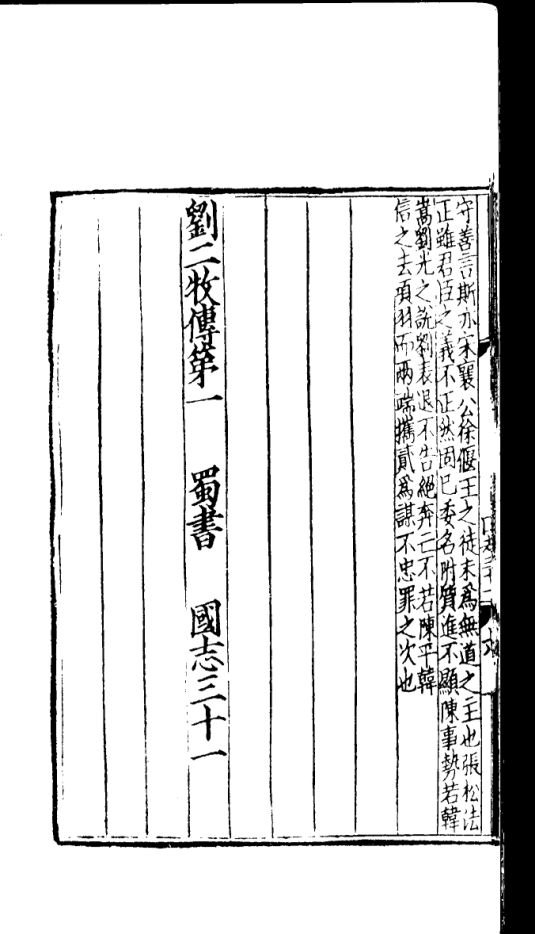 守善言斯亦宋襄公徐偃王之徒未爲無道之主也張松法
正雖君臣之義不正然固已委名附質進不顯陳事勢若韓
嵩劉光之說劉表退不告絕奔亡不若陳平韓
信之去項羽而兩端攜貳爲謀不忠罪之次也
劉二牧傳第一 蜀書 國志三十一